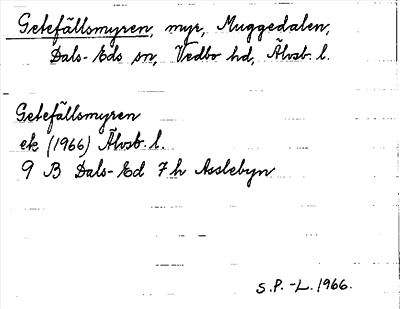 Getefällsmyren, myr, Muggedalen,
Dals-Eds sn, Vedbo hd, Älvsb. l.
Getefällsmyren
ek (1966) Älvsb. l.
9 B Dals-Ed 7 h Asslebyn
S.P.-L. 1966.